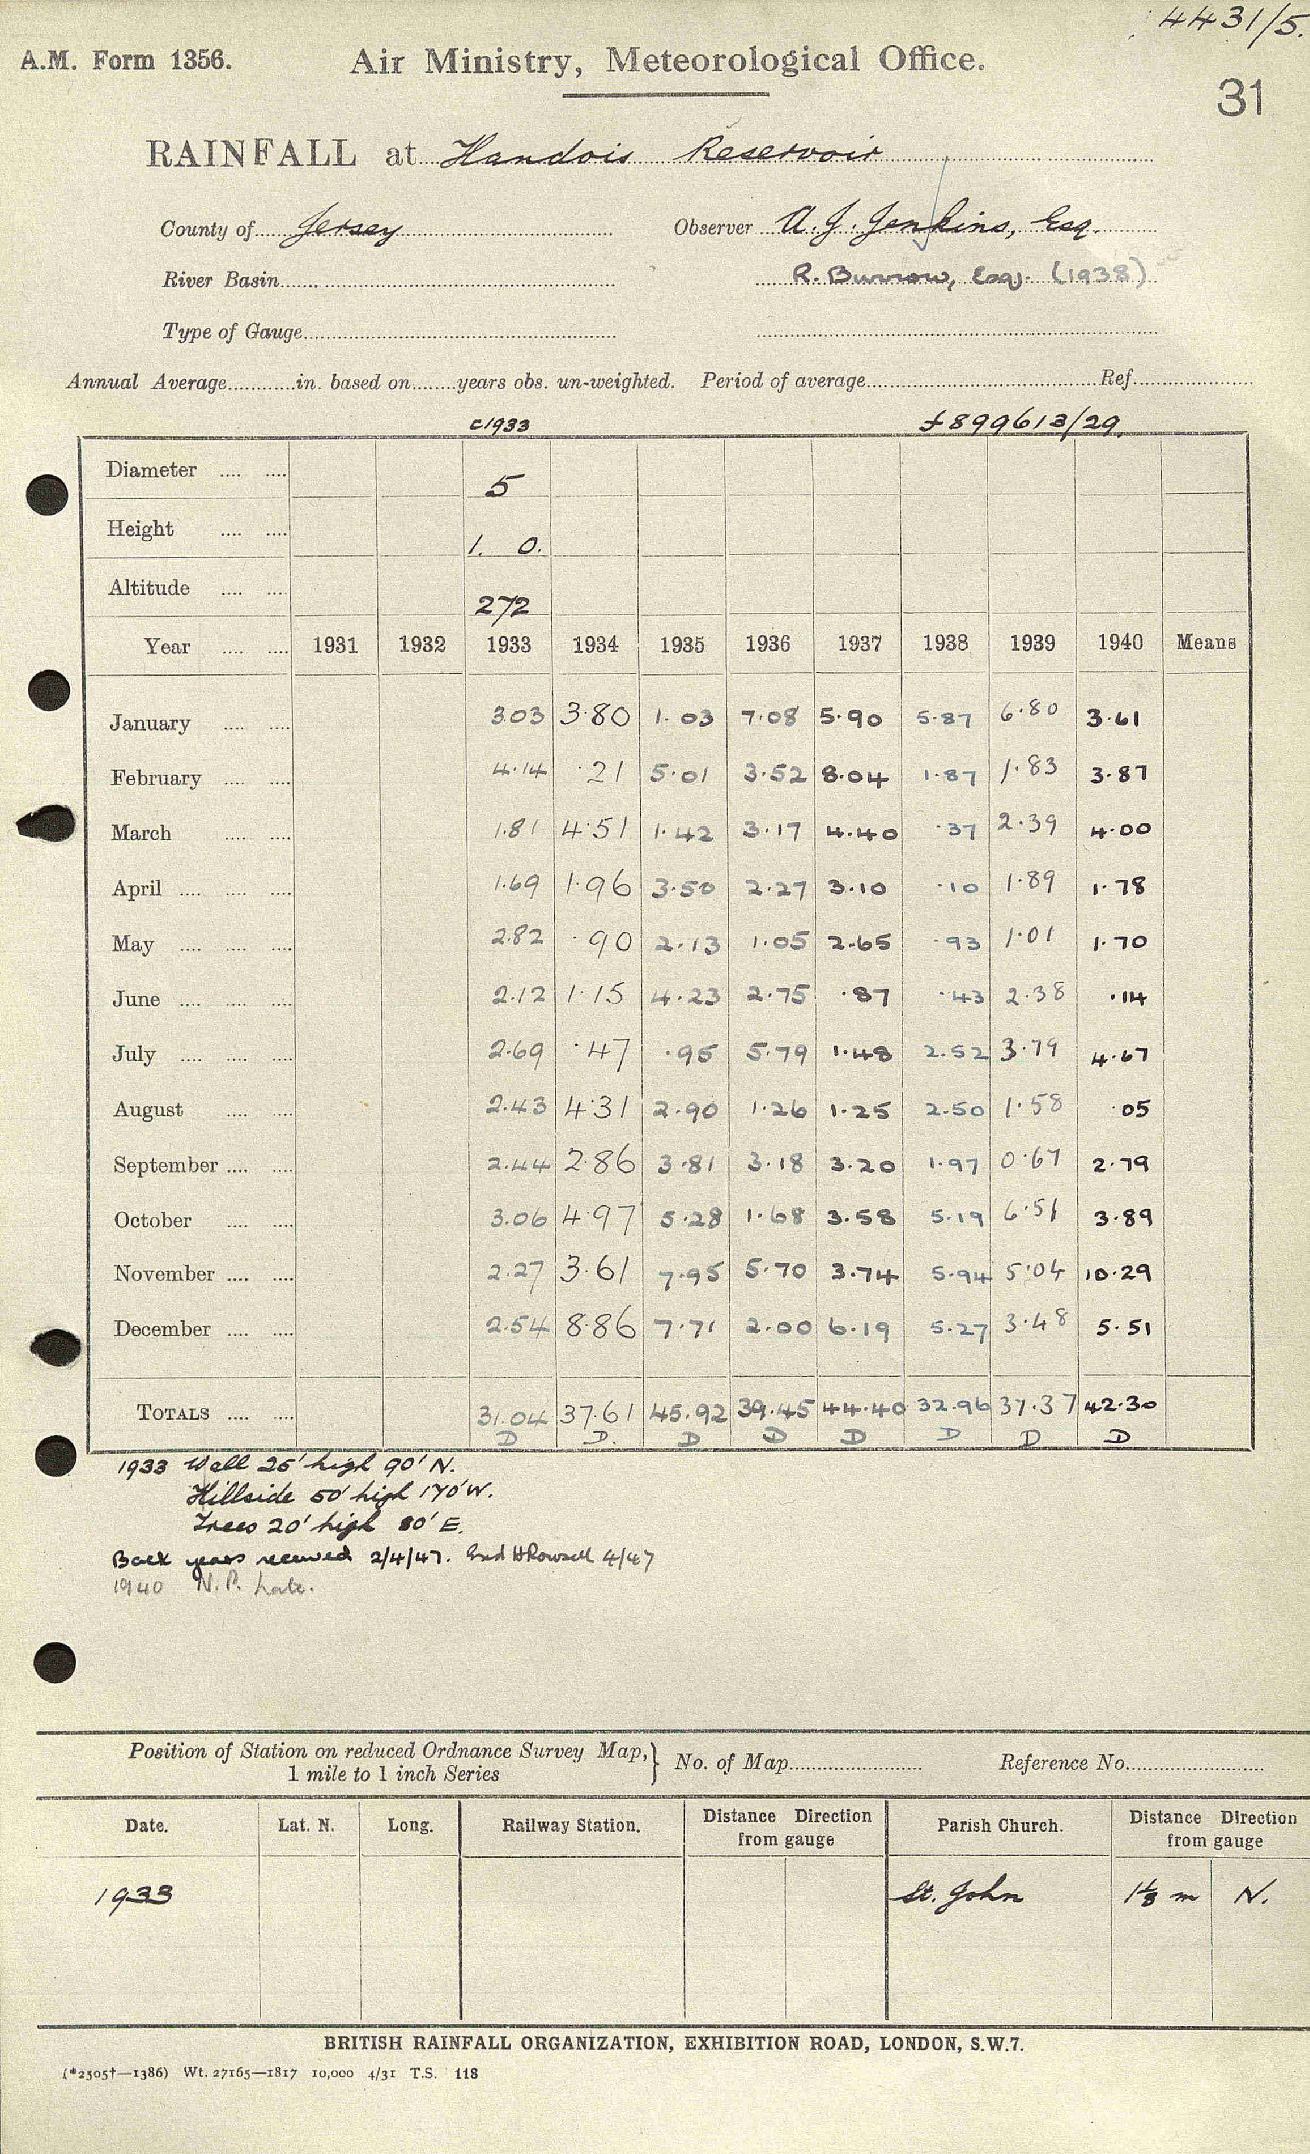 4431/5.
A.M. Form 1356. Air Ministry, Meteorological Office.
31
RAINFALL at Handois Reservoir
County of Jersey Observer A. J. Jenkins, Esq.
River Basin R. Burrow, Esq. (1938)
Type of Gauge
Annual Average in. based on years obs. un-weighted. Period of average Ref.
c1933 £899613/29.
Diameter 5
Height 1. 0.
Altitude 272
Year 1931 1932 1933 1934 1935 1936 1937 1938 1939 1940 Means
January 3.03 3.80 1.03 7.08 5.90 5.87 6.80 3.61
February 4.14 .21 5.01 3.52 8.04 1.87 1.83 3.87
March 1.81 4.51 1.42 3.17 4.40 .37 2.39 4.00
April 1.69 1.96 3.50 2.27 3.10 .10 1.89 1.78
May 2.82 .90 2.13 1.05 2.65 .93 1.01 1.70
June 2.12 1.15 4.23 2.75 .87 .43 2.38 .14
July 2.69 .47 .95 5.79 1.48 2.52 3.79 4.67
August 2.43 4.31 2.90 1.26 1.25 2.50 1.58 .05
September 2.44 2.86 3.81 3.18 3.20 1.97 0.67 2.79
October 3.06 4.97 5.28 1.68 3.58 5.19 6.51 3.89
November 2.27 3.61 7.95 5.70 3.74 5.94 5.04 10.29
December 2.54 8.86 7.71 2.00 6.19 5.27 3.48 5.51
TOTALS 31.04 37.61 45.92 39.45 44.40 32.96 37.37 42.30
D D. D D D D D D
1933 Wall 25' high 90' N.
Hillside 50' high 170' W.
Trees 20' high 80' E.
Back years received 2/4/47. H Rowsell 4/47
1940 N.P. Late.
Position of Station on reduced Ordnance Survey Map, 1 mile to 1 inch Series } No. of Map Reference No.
Date. Lat. N. Long. Railway Station. Distance Direction from gauge Parish Church. Distance Direction from gauge
1933 St. John 1⅓ m N.
BRITISH RAINFALL ORGANIZATION, EXHIBITION ROAD, LONDON, S.W.7.
(*2505†—1386) Wt. 27165—1817 10,000 4/31 T.S. 118